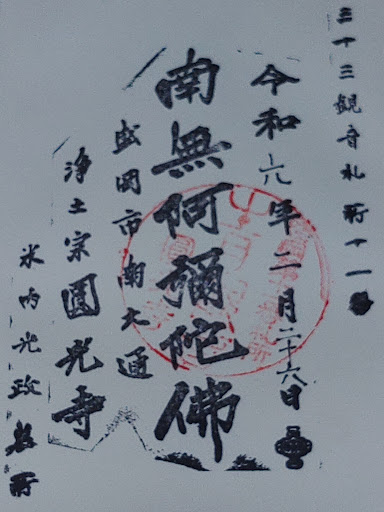 三十三観音札所十一
令和六年二月二十六日
南無阿彌陀佛
盛岡市南大通
浄土宗圓光寺
米内光政墓所